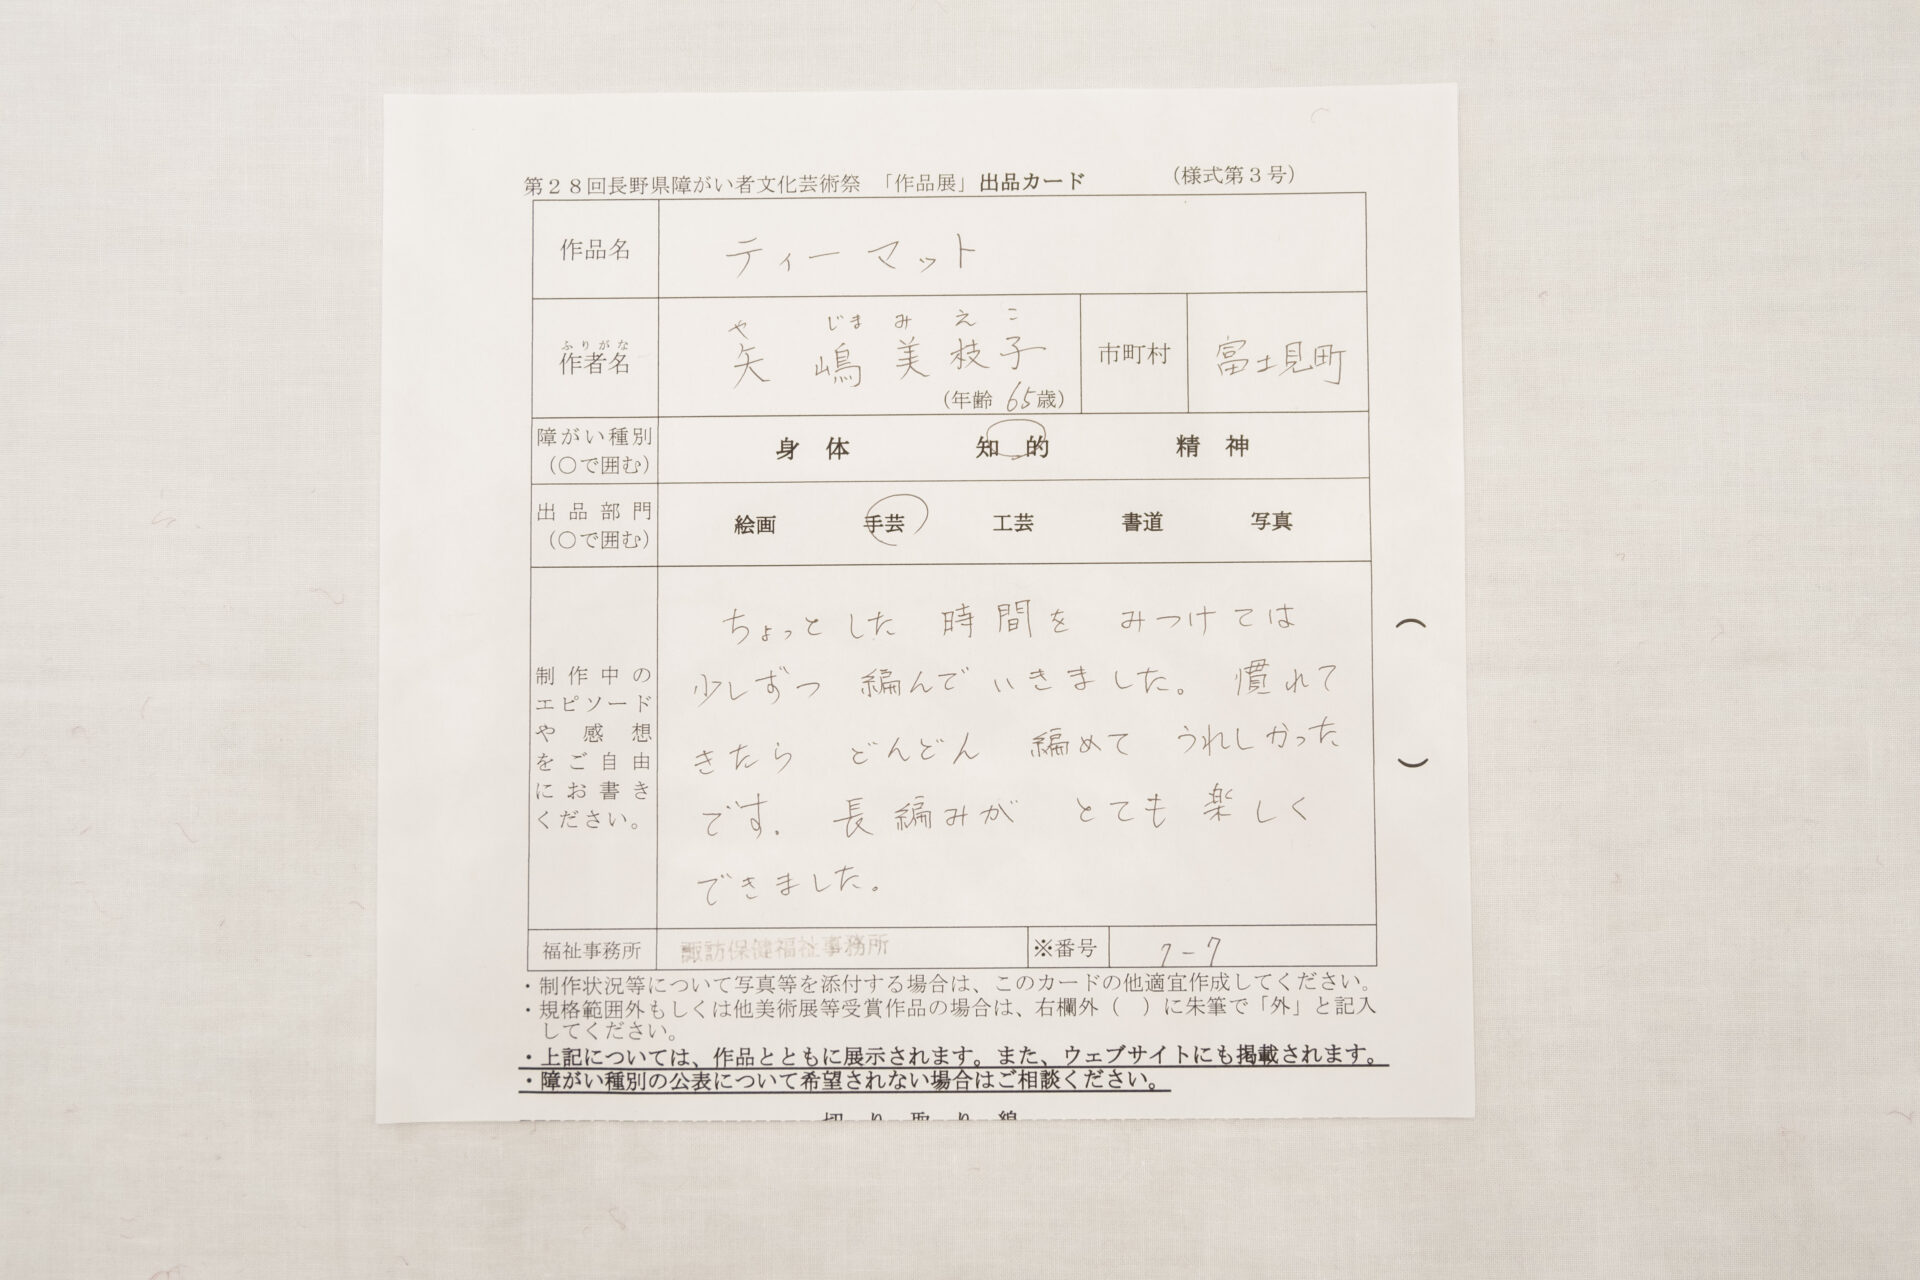 第２８回長野県障がい者文化芸術祭 「作品展」出品カード （様式第３号）
作品名 ティーマット
や じま み え こ
ふりがな
作者名 矢嶋美枝子 市町村 富士見町
（年齢 65歳）
障がい種別 身体 知的 精神
（○で囲む）
出品部門 絵画 手芸 工芸 書道 写真
（○で囲む）
制作中の
エピソード
や感想
をご自由
にお書き
ください。
ちょっとした 時間を みつけては
少しずつ 編んで いきました。 慣れて
きたら どんどん 編めて うれしかった
です. 長編みが とても 楽しく
できました。
（ ）
福祉事務所 諏訪保健福祉事務所 ※番号 7-7
・制作状況等について写真等を添付する場合は、このカードの他適宜作成してください。
・規格範囲外もしくは他美術展等受賞作品の場合は、右欄外（ ）に朱筆で「外」と記入
してください。
・上記については、作品とともに展示されます。また、ウェブサイトにも掲載されます。
・障がい種別の公表について希望されない場合はご相談ください。
切り取り線